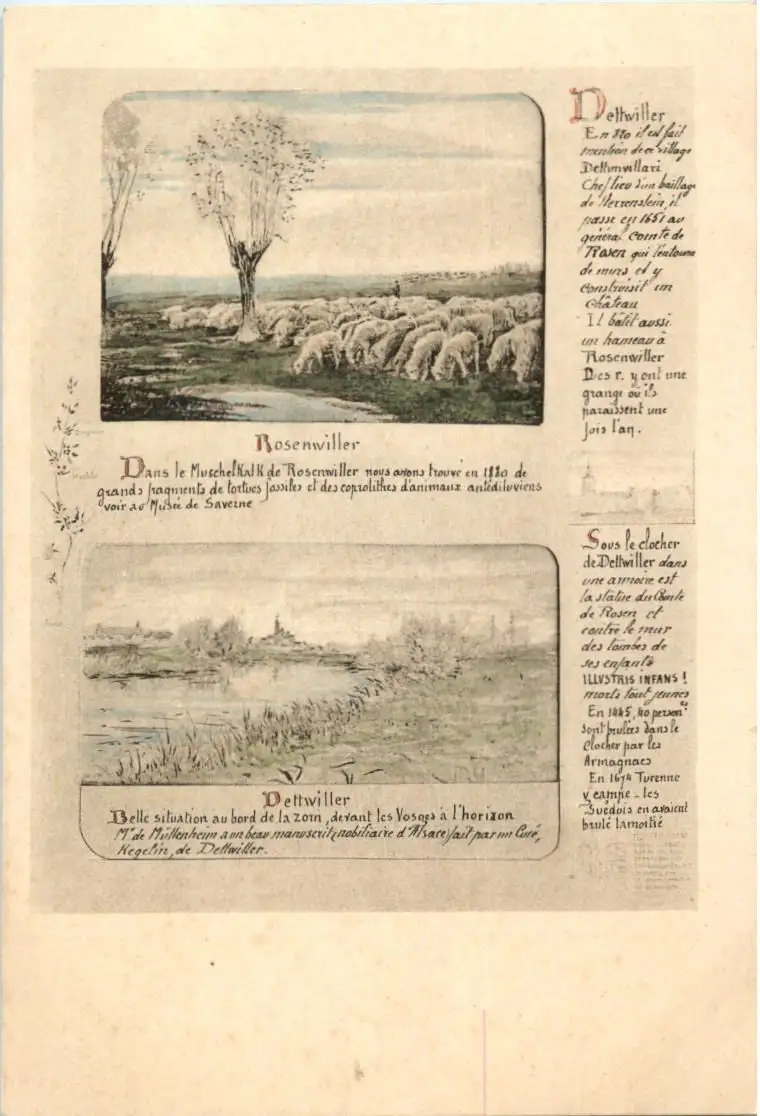 Rosenwiller
Dans le Muschelkalk de Rosenwiller nous avons trouvé en 1880 de
grands fragments de tortues fossiles et des coprolithes d'animaux antédiluviens
voir au Musée de Saverne
Dettwiller
Belle situation au bord de la Zorn, devant les Vosges à l'horizon
Mr de Müllenheim a un beau manuscrit nobiliaire d'Alsace fait par un Curé,
Kegelin, de Dettwiller.
Dettwiller
En 820 il est fait
mention de ce village
Dettunvillari
Chef lieu d'un baillage
de Herrenstein, il
passe en 1651 au
général Comte de
Rosen qui l'entoure
de murs et y
construisit un
Château
Il bâtit aussi
un hameau à
Rosenwiller
Des r. y ont une
grange où ils
paraissent une
fois l'an.
Sous le clocher
de Dettwiller dans
une armoire est
la statue du Comte
de Rosen et
contre le mur
des tombes de
ses enfants
ILLVSTRIS INFANS !
morts tout jeunes
En 1445, 40 person.
sont brulées dans le
Clocher par les
Armagnacs
En 1674 Turenne
y campe - les
Suédois en avaient
brulé la moitié